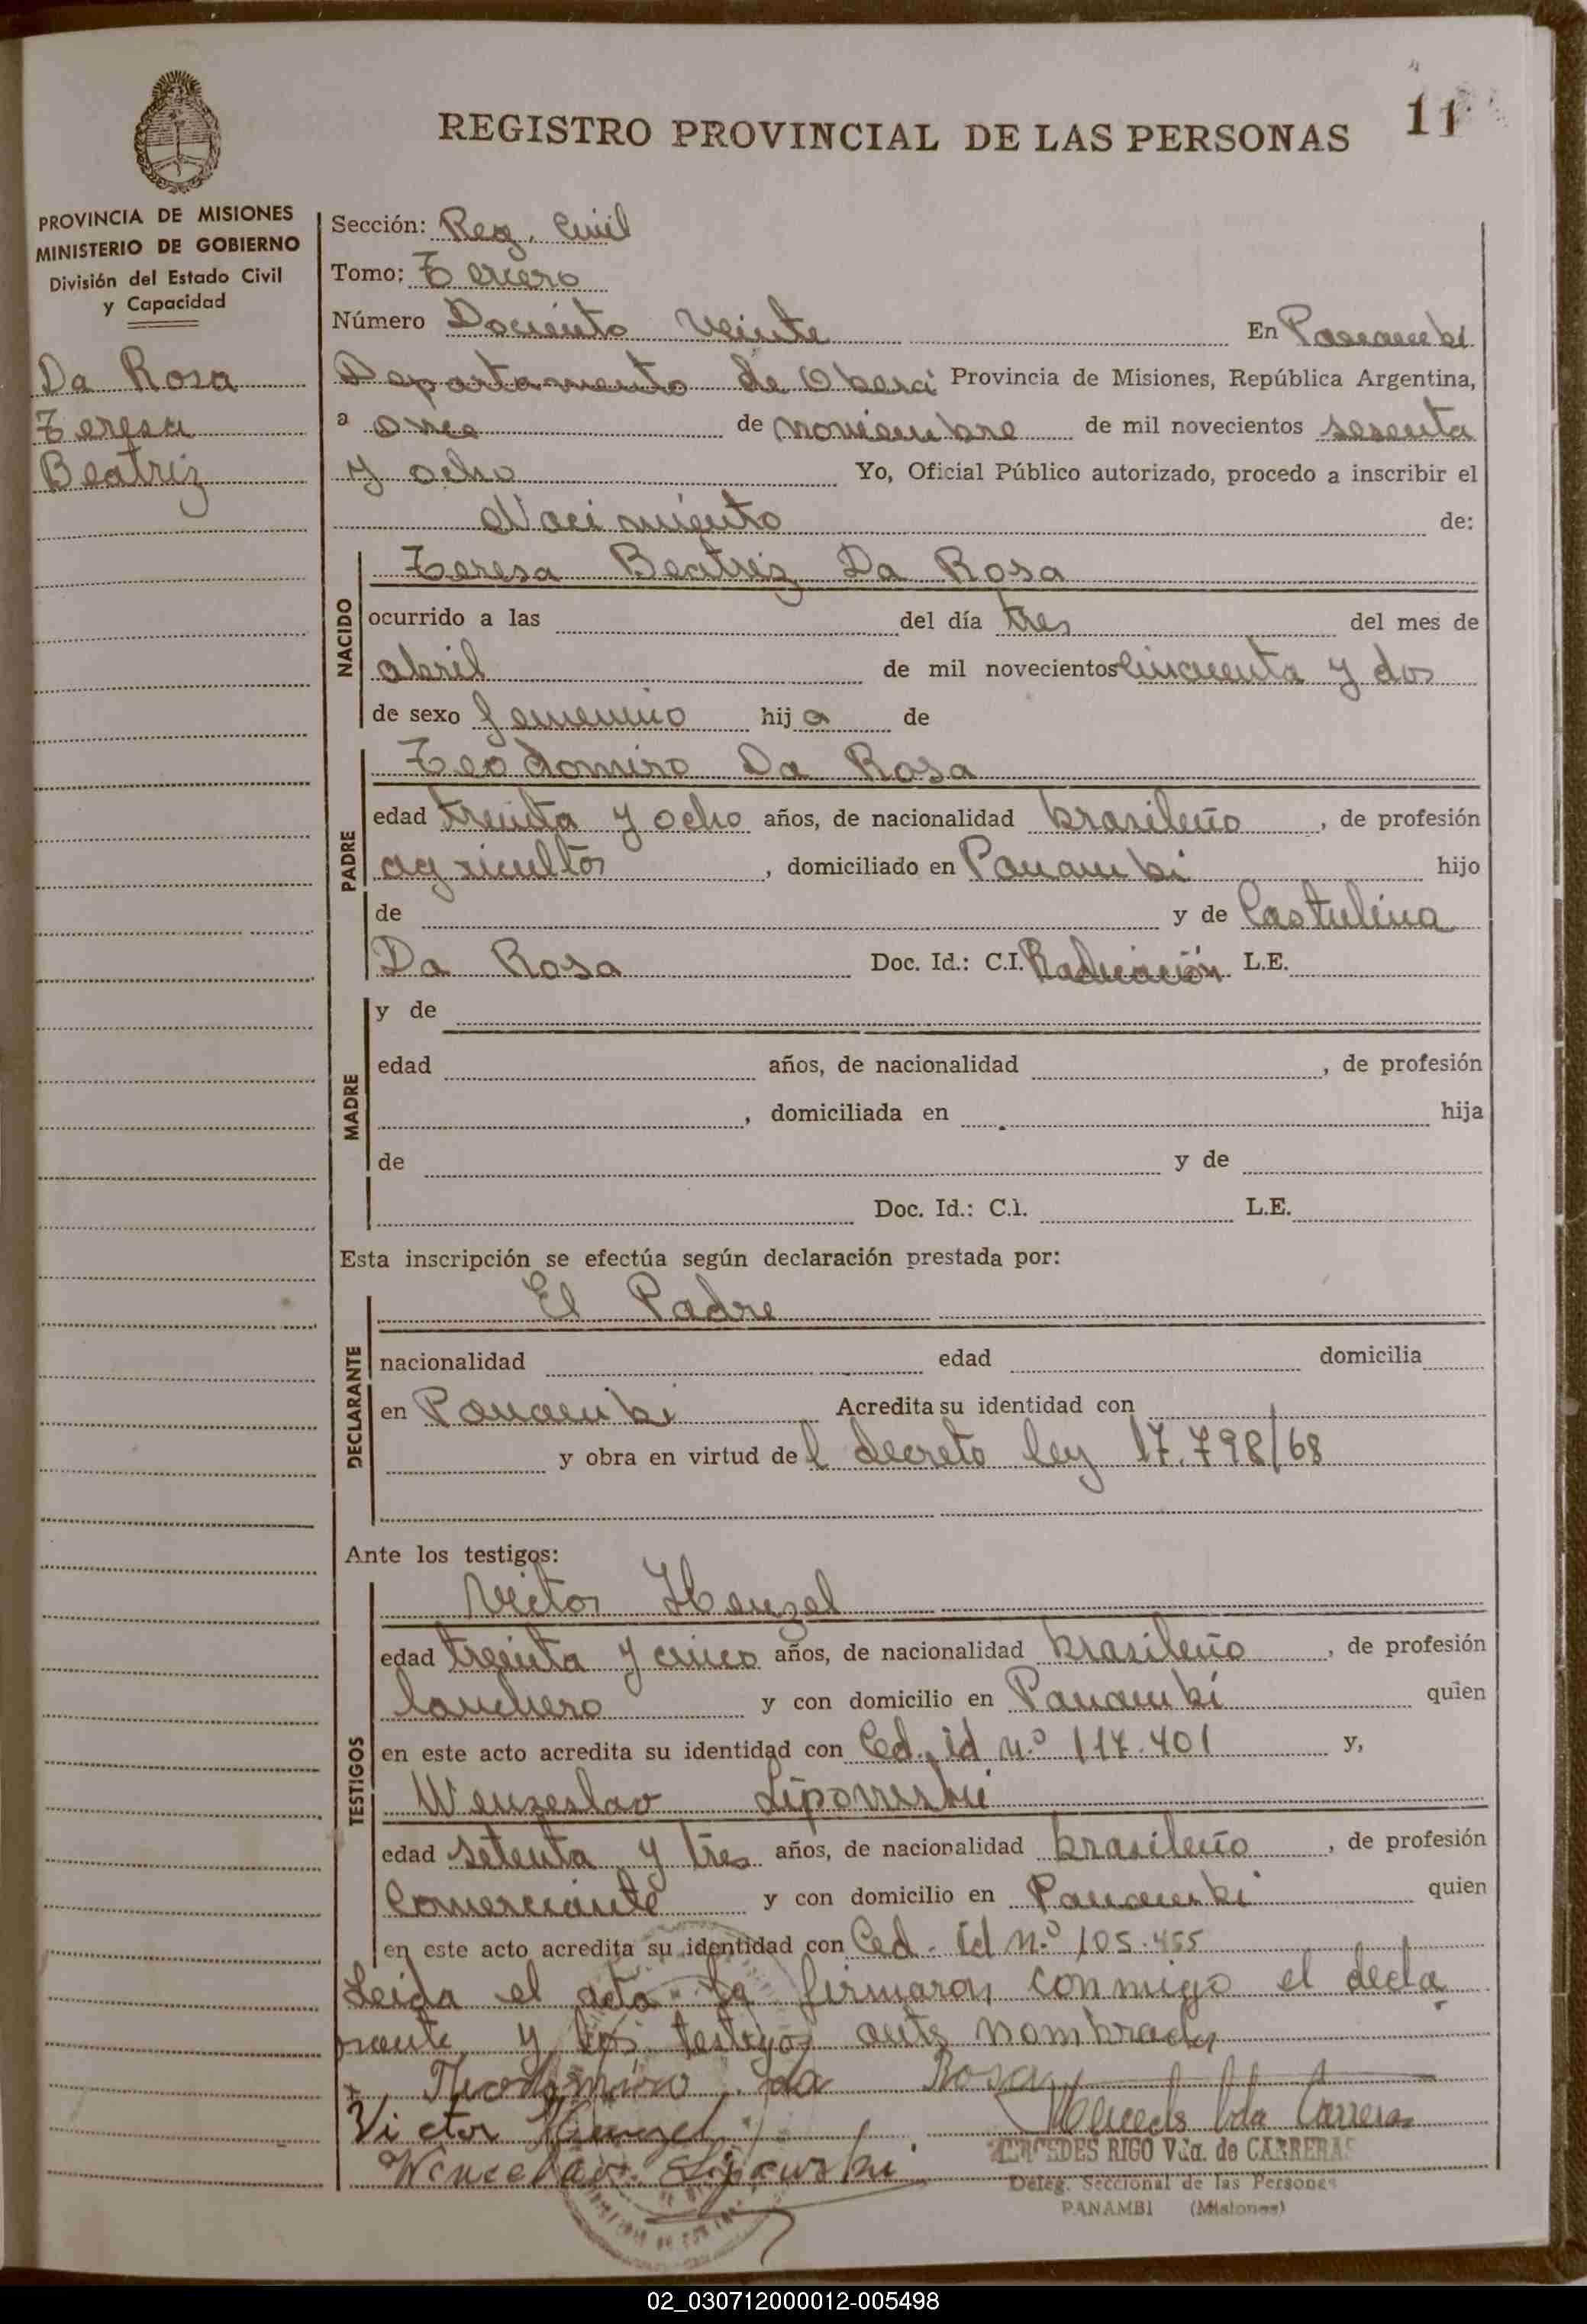 11
REGISTRO PROVINCIAL DE LAS PERSONAS
PROVINCIA DE MISIONES
MINISTERIO DE GOBIERNO
División del Estado Civil
y Capacidad
Da Rosa
Teresa
Beatriz
Sección: Reg. Civil
Tomo: Tercero
Número Dociento Veinte En Panambí
Departamento de Oberá Provincia de Misiones, República Argentina,
a once de noviembre de mil novecientos sesenta
y ocho Yo, Oficial Público autorizado, procedo a inscribir el
Nacimiento de:
NACIDO
Teresa Beatriz Da Rosa
ocurrido a las del día tres del mes de
abril de mil novecientos cincuenta y dos
de sexo femenino hij a de
PADRE
Teodomiro Da Rosa
edad treinta y ocho años, de nacionalidad brasileño, de profesión
agricultor, domiciliado en Panambi hijo
de y de Castulina
Da Rosa Doc. Id.: C.I. Radicación L.E.
MADRE
y de
edad años, de nacionalidad , de profesión
, domiciliada en hija
de y de
Doc. Id.: C.I. L.E.
Esta inscripción se efectúa según declaración prestada por:
DECLARANTE
El Padre
nacionalidad edad domicilia
en Panambi Acredita su identidad con
y obra en virtud de l decreto ley 17.798/68
Ante los testigos:
TESTIGOS
Victor Henzel
edad treinta y cinco años, de nacionalidad brasileño, de profesión
lanchero y con domicilio en Panambí quien
en este acto acredita su identidad con Ced. id n.º 117.401 y,
Wenzeslao Lipowski
edad setenta y tres años, de nacionalidad brasileño, de profesión
Comerciante y con domicilio en Panambi quien
en este acto acredita su identidad con Ced. id n.º 105.455
Leida el acta la firmaron conmigo el decla
rante y los testigos ante nombrados
Theodomiro da Rosa
Victor Henzel
Mercedes Vda Carreras
Wenceslao Lipowski
MERCEDES RIGO Vda. de CARRERAS
Deleg. Seccional de las Personas
PANAMBI (Misiones)
02_030712000012-005498